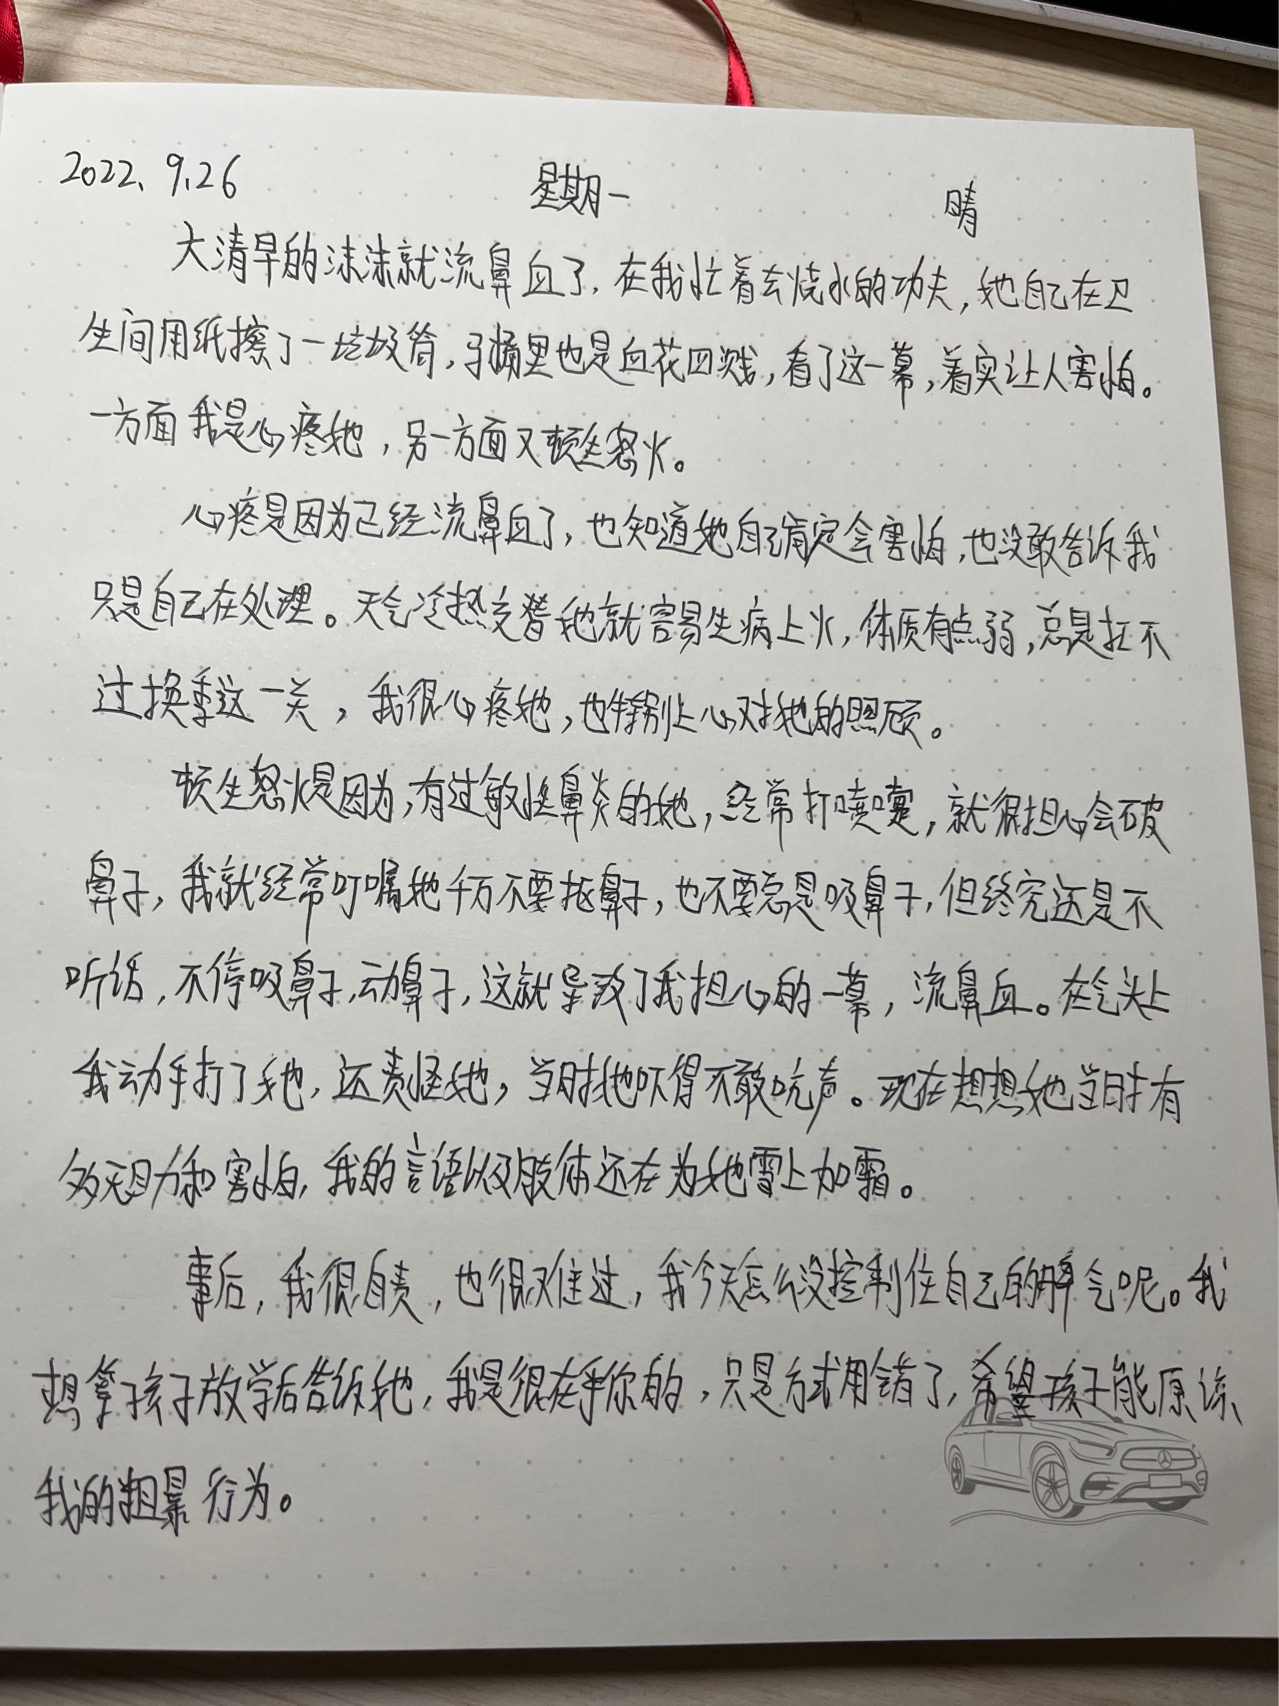 2022.9.26 星期一 晴
大清早的沫沫就流鼻血了,在我忙着去烧水的功夫,她自己在卫
生间用纸擦了一垃圾筒,马桶里也是血花四溅,看了这一幕,着实让人害怕。
一方面我是心疼她,另一方面又顿生怒火。
心疼是因为已经流鼻血了,也知道她自己肯定会害怕,也没敢告诉我
只是自己在处理。天气冷热交替她就容易生病上火,体质有点弱,总是扛不
过换季这一关,我很心疼她,也特别上心对她的照顾。
顿生怒火是因为,有过敏性鼻炎的她,经常打喷嚏,就很担心会破
鼻子,我就经常叮嘱她千万不要抠鼻子,也不要总是吸鼻子,但终究还是不
听话,不停吸鼻子,动鼻子,这就导致了我担心的一幕,流鼻血。在气头上
我动手打了她,还责怪她,当时她吓得不敢吭声。现在想想她当时有
多无助和害怕,我的言语以及肢体还在为她雪上加霜。
事后,我很自责,也很难过,我今天怎么没控制住自己的脾气呢。我
想拿孩子放学后告诉她,我是很在乎你的,只是方式用错了,希望孩子能原谅
我的粗暴行为。